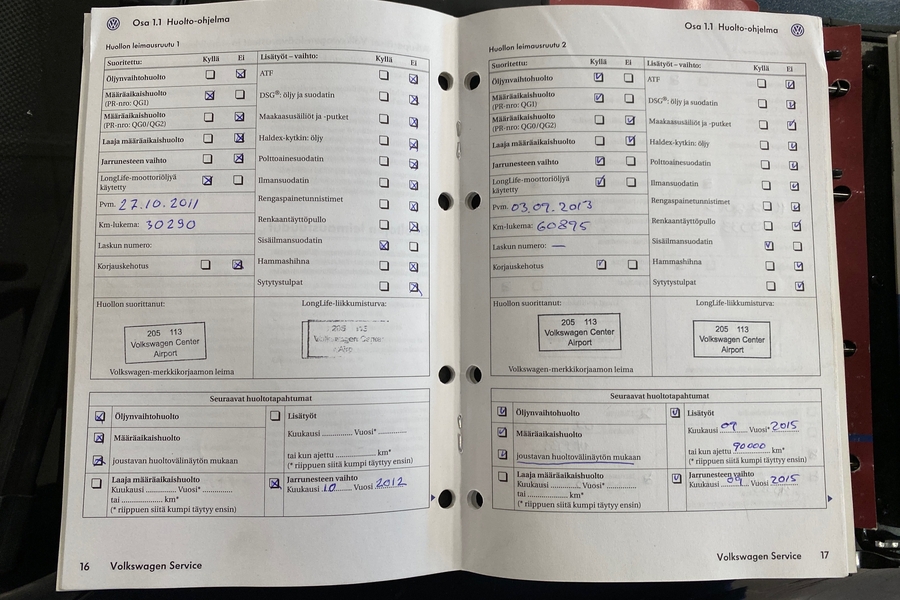 Osa 1.1 Huolto-ohjelma
Huollon leimausruutu 1
Suoritettu: Kyllä Ei
Öljynvaihtohuolto
Määräaikaishuolto
(PR-nro: QGI)
Määräaikaishuolto
(PR-nro: QG0/QG2)
Laaja määräaikaishuolto
Jarrunesteen vaihto
LongLife-moottoriöljyä
käytetty
Pvm. 27.10.2011
Km-lukema: 30290
Laskun numero:
Korjauskehotus
Lisätyöt – vaihto: Kyllä Ei
ATF
DSG®: öljy ja suodatin
Maakaasusäiliöt ja -putket
Haldex-kytkin: öljy
Polttoainesuodatin
Ilmansuodatin
Rengaspainetunnistimet
Renkaantäyttöpullo
Sisäilmansuodatin
Hammashihna
Sytytystulpat
Huollon suorittanut:
205 113
Volkswagen Center
Airport
LongLife-liikkumisturva:
205 113
Volkswagen Center
Airp
Volkswagen-merkkikorjaamon leima
Seuraavat huoltotapahtumat
Öljynvaihtohuolto
Määräaikaishuolto
joustavan huoltovälinäytön mukaan
Laaja määräaikaishuolto
Kuukausi ............... Vuosi* ...............
tai ............... km*
(* riippuen siitä kumpi täytyy ensin)
Lisätyöt
Kuukausi ............... Vuosi* ...............
tai kun ajettu ............... km*
(* riippuen siitä kumpi täytyy ensin)
Jarrunesteen vaihto
Kuukausi 10 Vuosi 2012
16 Volkswagen Service
Osa 1.1 Huolto-ohjelma
Huollon leimausruutu 2
Suoritettu: Kyllä Ei
Öljynvaihtohuolto
Määräaikaishuolto
(PR-nro: QGI)
Määräaikaishuolto
(PR-nro: QG0/QG2)
Laaja määräaikaishuolto
Jarrunesteen vaihto
LongLife-moottoriöljyä
käytetty
Pvm. 03.09.2013
Km-lukema: 60895
Laskun numero: —
Korjauskehotus
Lisätyöt – vaihto: Kyllä Ei
ATF
DSG®: öljy ja suodatin
Maakaasusäiliöt ja -putket
Haldex-kytkin: öljy
Polttoainesuodatin
Ilmansuodatin
Rengaspainetunnistimet
Renkaantäyttöpullo
Sisäilmansuodatin
Hammashihna
Sytytystulpat
Huollon suorittanut:
205 113
Volkswagen Center
Airport
LongLife-liikkumisturva:
205 113
Volkswagen Center
Airport
Volkswagen-merkkikorjaamon leima
Seuraavat huoltotapahtumat
Öljynvaihtohuolto
Määräaikaishuolto
joustavan huoltovälinäytön mukaan
Laaja määräaikaishuolto
Kuukausi ............... Vuosi* ...............
tai ............... km*
(* riippuen siitä kumpi täytyy ensin)
Lisätyöt
Kuukausi 09 Vuosi* 2015
tai kun ajettu 90000 km*
(* riippuen siitä kumpi täytyy ensin)
Jarrunesteen vaihto
Kuukausi 09 Vuosi 2015
Volkswagen Service 17